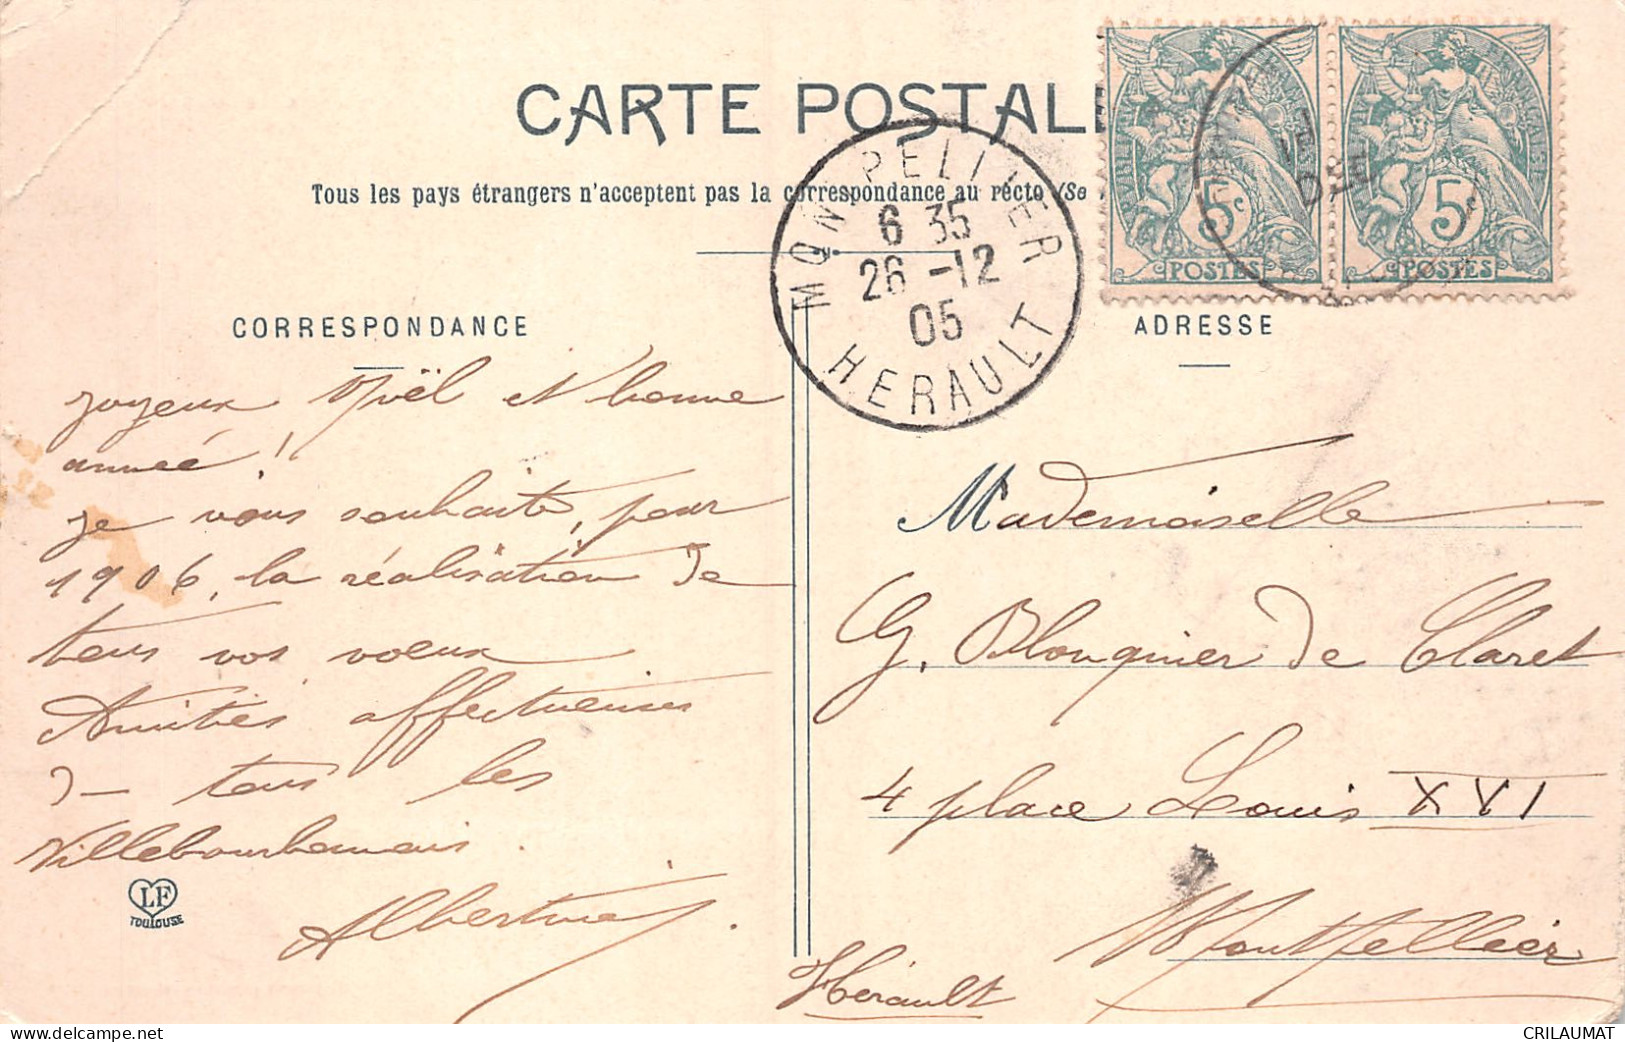 CARTE POSTALE
Tous les pays étrangers n'acceptent pas la correspondance au recto (Se
MONTPELLIER
6 35
26 -12
05
HERAULT
RÉPUBLIQUE FRANÇAISE
5c
POSTES
5c
POSTES
CORRESPONDANCE
ADRESSE
joyeux Noël et bonne
année !
je vous souhaite, pour
1906, la réalisation de
tous vos voeux
Amitiés affectueuses
à tous les
Villebourbonnais.
Albertine
LF
TOULOUSE
Mademoiselle
G. Blouquier de Claret
4 place Louis XVI
Montpellier
Hérault
delcampe.net
CRILAUMAT